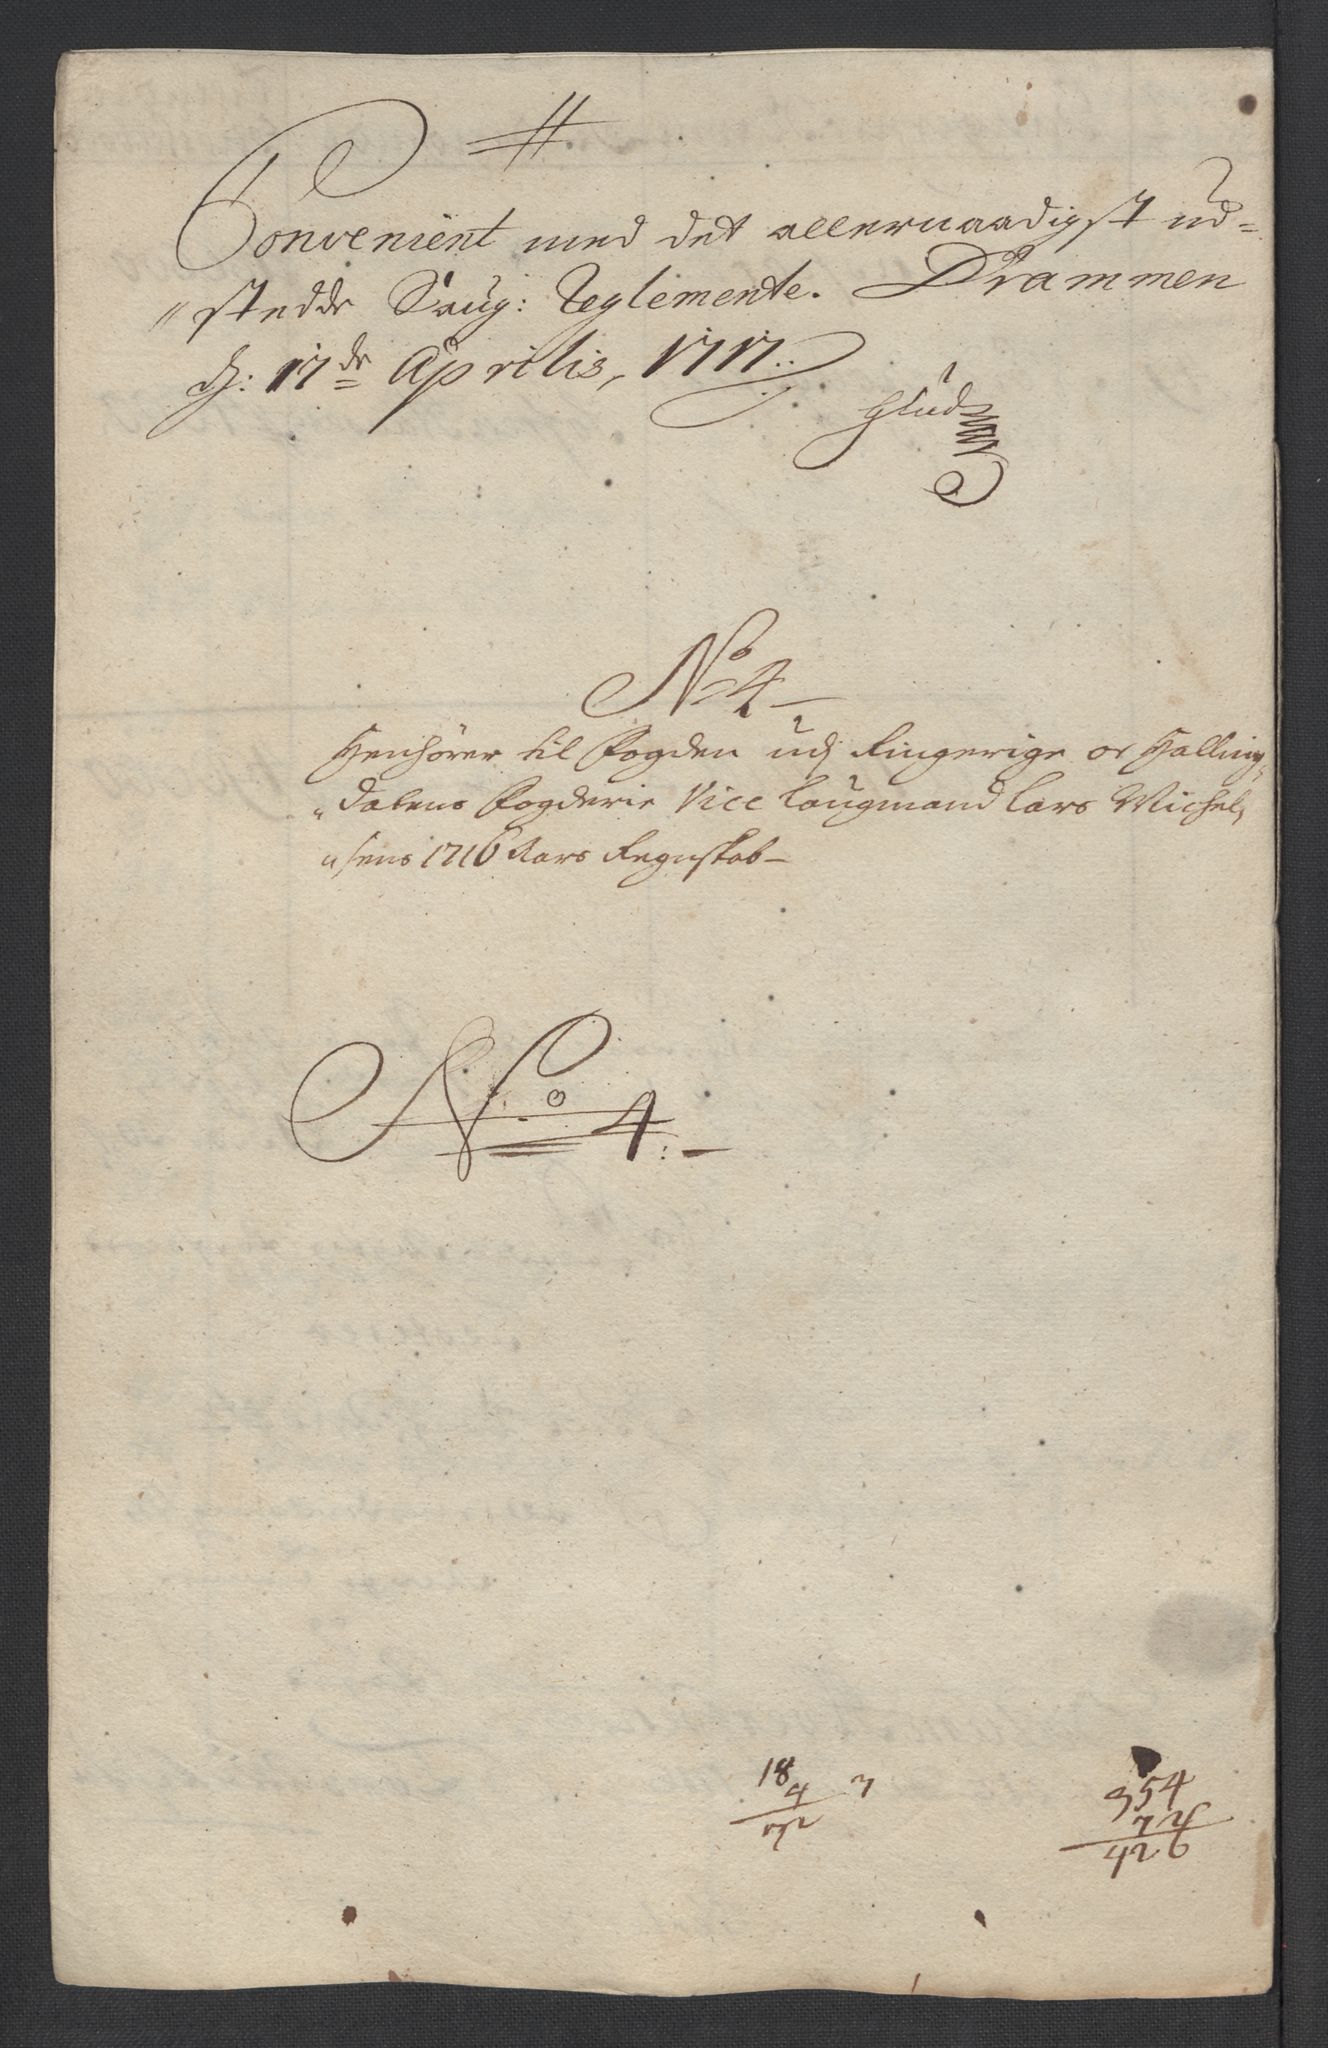 Convenient med det allernaadigst ud=
„stedde Saug: Reglemente. Drammen
d: 17de Aprilis, 1717.
Glud
No 4
Henhører til Fogden udj Ringerige oc Halling„
„dalens Fogderie Vice Laugmand Lars Michel„
„sens 1716 Aars Regnskab
No 4:
18
4 7
72
354
72
426